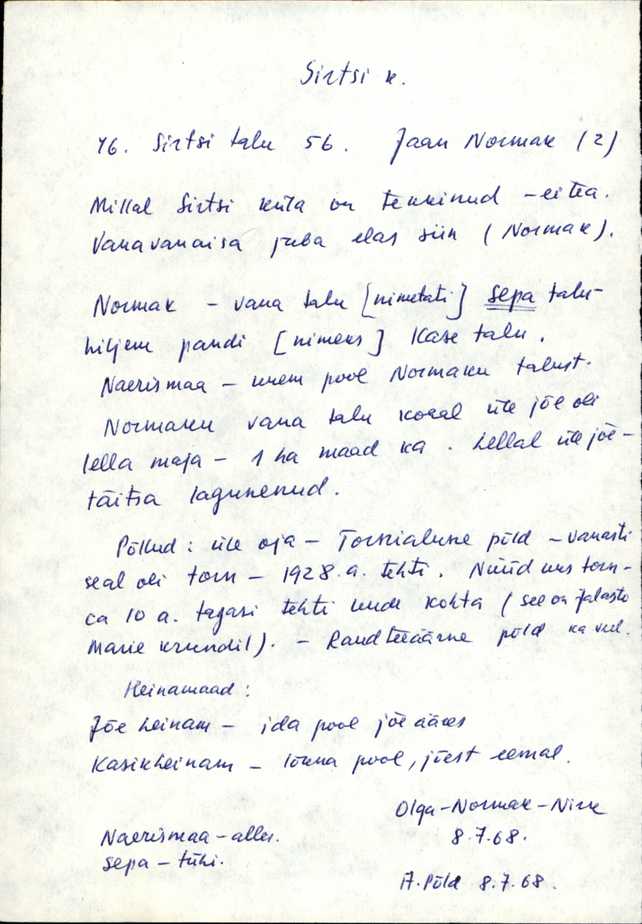 Sirtsi k.
46. Sirtsi talu 56. Jaan Normak (2)
Millal Sirtsi küla on tekkinud – ei tea.
Vanavanaisa juba elas siin (Normak).
Normak – vana talu [nimetati] Sepa talu –
hiljem pandi [nimeks] Kase talu.
Naerismaa – enem pool Normaku talust.
Normaku vana talu kohal üle jõe oli
lella maja – 1 ha maad ka. Lellal üle jõe –
täitsa lagunenud.
Põllud: üle oja – Tornialune põld – vanasti
seal oli torn – 1928. a. tehti. Nüüd uus torn –
ca 10 a. tagasi tehti uude kohta (see on Jalasto
Marie krundil). – Raudteeäärne põld ka veel.
Heinamaad:
Jõe heinam – ida pool jõe ääres
Kasikheinam – lõuna pool, jõest eemal.
Olga-Normak-Nirk
8.7.68.
Naerismaa – alles.
Sepa – tühi.
A. Põld 8.7.68.